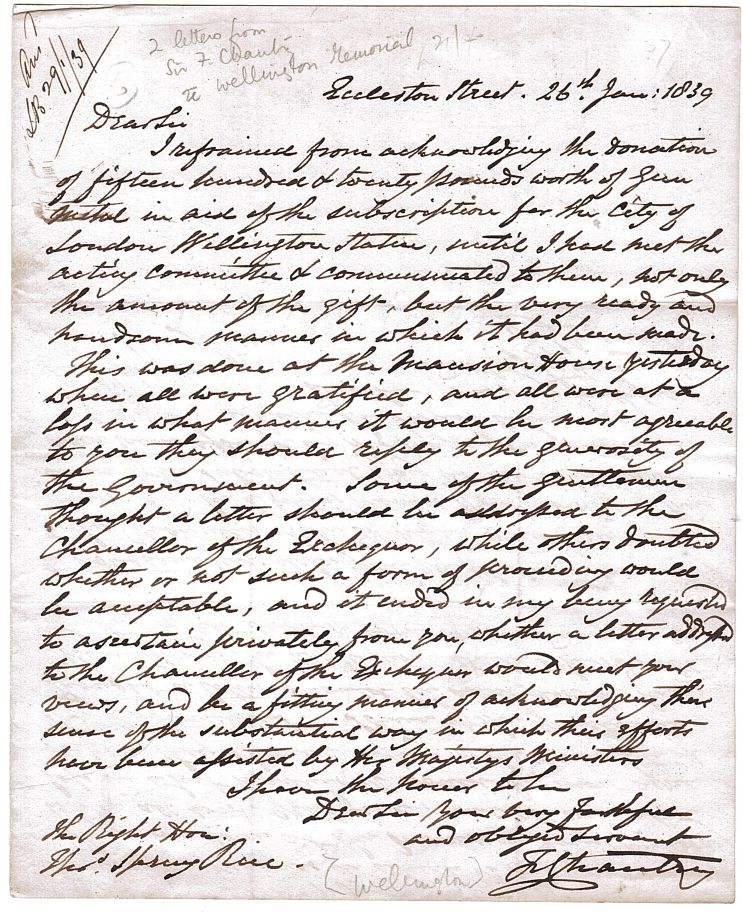 Ansd
LB 29/1/39
2 letters from
Sir F. Chantrey
re Wellington Memorial, 21/-
Eccleston Street. 26th Jan: 1839
Dear Sir
I refrained from acknowledging the donation
of fifteen hundred & twenty pounds worth of Gun
metal in aid of the subscription for the City of
London Wellington Statue, until I had met the
acting committee & communicated to them, not only
the amount of the gift, but the very ready and
handsome manner in which it had been made.
This was done at the Mansion House yesterday
where all were gratified, and all were at a
loss in what manner it would be most agreeable
to you they should reply to the generosity of
the Government. Some of the gentlemen
thought a letter should be addressed to the
Chancellor of the Exchequor, while others doubted
whether or not such a form of proceeding would
be acceptable, and it ended in my being requested
to ascertain privately from you, whether a letter addressed
to the Chancellor of the Exchequer would meet your
views, and be a fitting manner of acknowledging their
sense of the substantial way in which their efforts
have been assisted by Her Majestys Ministers
I have the honor to be
Dear Sir Your very faithful
and obliged servant
F Chantrey
The Right Hon:
Thos. Spring Rice.
[Wellington]